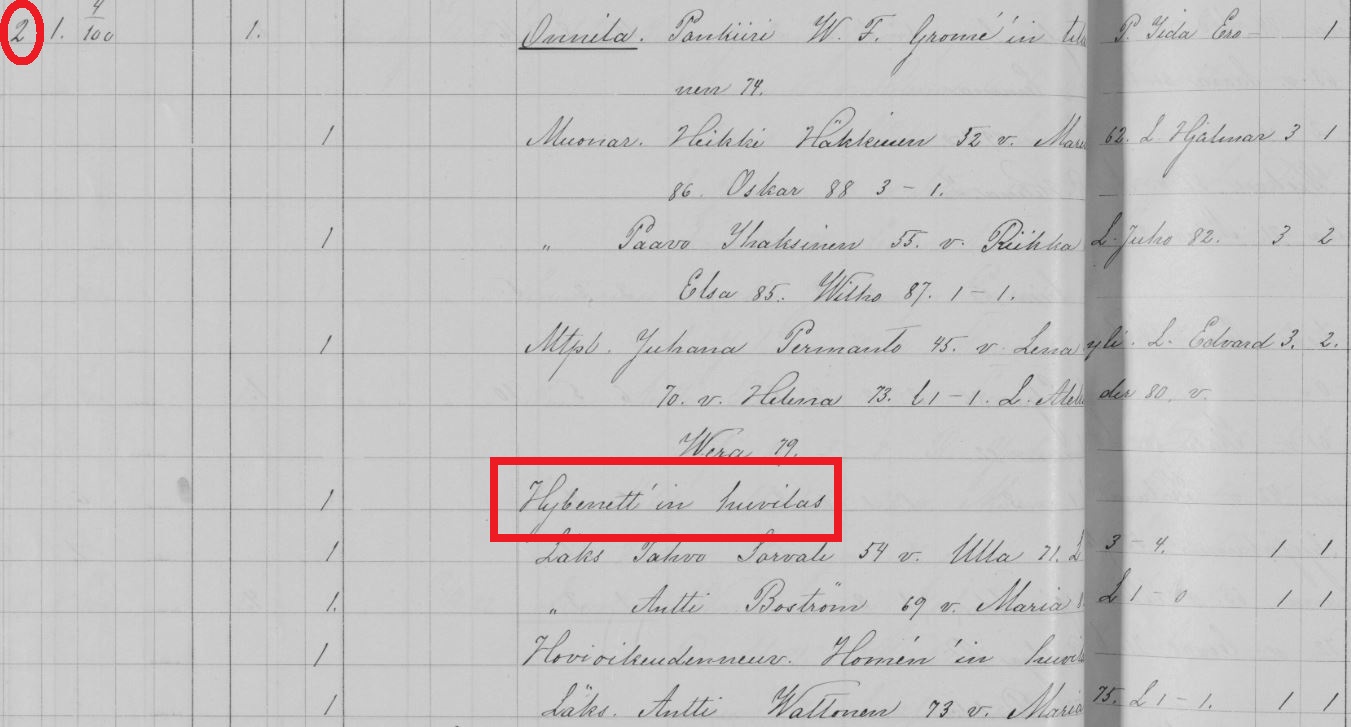 2 1. 4/100 1. Onnila. Pankiiri W. F. Gromé'in P. Iida Ero- 1
nen 74.
1 Muonar. Heikki Häkkinen 52 v. Mari 62. L. Hjalmar 3 1
86. Oskar 88 3-1.
1 „ Paavo Ihaksinen 55. v. Riikka L. Juho 82. 3 2
Elsa 85. Wilho 87. 1-1.
1 Mtpl. Juhana Permanto 45. v. Lena yli. L. Edvard 3. 2.
70. v. Helena 73. 1-1. L. der 80. v.
Wera 79.
1 Hybenett'in huvilas
1 Läks Tahvo Sorvali 54 v. Ulla 71. L 3-4. 1 1
1. „ Antti Boström 69 v. Maria L 1-0 1 1
1 Hovioikeudenneuv. Homén'in huvil
1 Läks. Antti Wattonen 73 v. Maria 75. L 1-1. 1 1